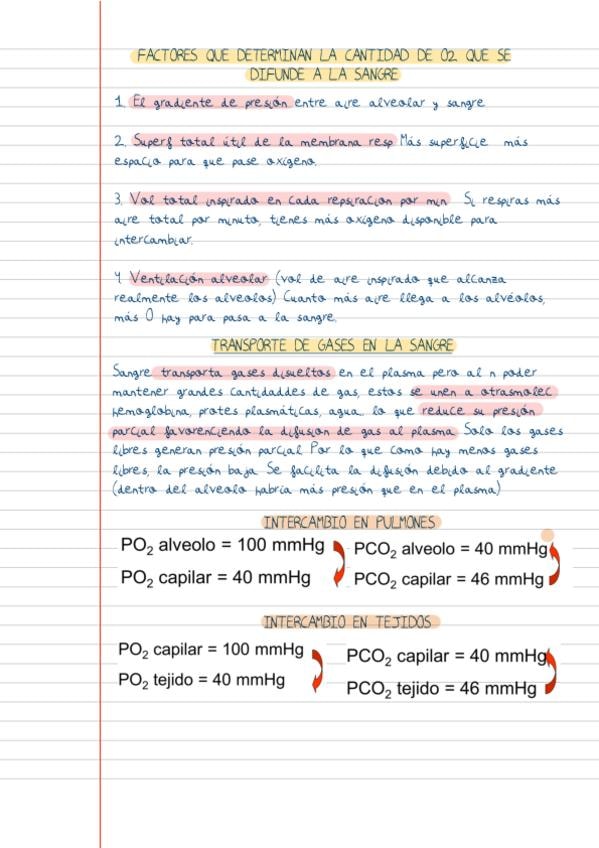 FACTORES QUE DETERMINAN LA CANTIDAD DE O2 QUE SE
DIFUNDE A LA SANGRE
1. El gradiente de presión entre aire alveolar y sangre
2. Superf total útil de la membrana resp Más superficie más
espacio para que pase oxígeno.
3. Vol total inspirado en cada repsiracion por min Si respiras más
aire total por minuto, tienes más oxígeno disponible para
intercambiar.
4. Ventilación alveolar (vol de aire inspirado que alcanza
realmente los alveolos) Cuanto más aire llega a los alvéolos,
más O hay para pasa a la sangre.
TRANSPORTE DE GASES EN LA SANGRE
Sangre transporta gases disueltos en el plasma pero al n poder
mantener grandes cantidaddes de gas, estos se unen a otrasmolec
hemoglobina, protes plasmáticas, agua lo que reduce su presión
parcial favorenciendo la difusion de gas al plasma Solo los gases
libres generan presión parcial Por lo que como hay menos gases
libres, la presión baja Se facilita la difusión debido al gradiente
(dentro del alveolo habría más presión que en el plasma)
INTERCAMBIO EN PULMONES
PO2 alveolo = 100 mmHg PCO2 alveolo = 40 mmHg
PO2 capilar = 40 mmHg PCO2 capilar = 46 mmHg
INTERCAMBIO EN TEJIDOS
PO2 capilar = 100 mmHg PCO2 capilar = 40 mmHg
PO2 tejido = 40 mmHg PCO2 tejido = 46 mmHg